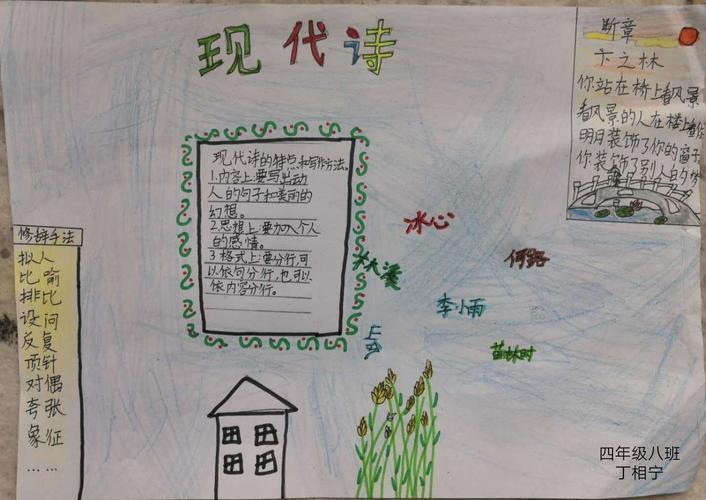 现代诗
断章
卞之林
你站在桥上看风景
看风景的人在楼上看你
明月装饰了你的窗子
你装饰了别人的梦
现代诗的特点和写作方法。
1.内容上:要写出动
人的句子和美丽的
幻想。
2.思想上:要加入个人
的感情。
3.格式上:要分行,可
以依句分行,也可以
依内容分行。
冰心
何路
李小雨
苗林时
修辞手法
拟人
比喻
排比
设问
反复
顶针
对偶
夸张
象征
……
四年级八班
丁相宁